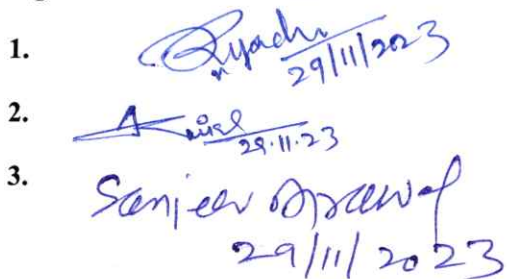 1.
29/11/2023
2.
29.11.23
3. Sanjeev Agrawal
29/11/2023